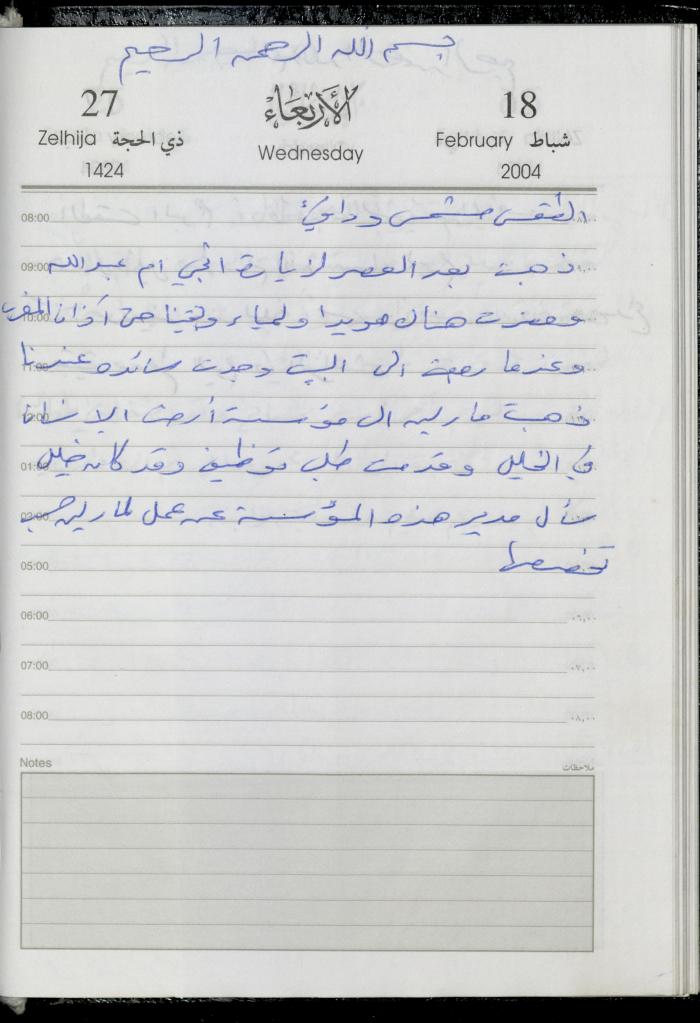 بسم الله الرحمن الرحيم
27 الأربعاء 18
Zelhija ذي الحجة Wednesday February شباط
1424 2004
08:00 الطقس مشمس ودافئ
09:00 ذهبت بعد العصر لزيارة اختي ام عبدالله
10:00 وحضرت هناك هويدا ولمياء وبقينا حتى آذان المغرب
11:00 وعندما رجعت الى البيت وجدت سائده عندنا
12:00 ذهبت مارلين الى مؤسسة أرض الانسان
01:00 في الخليل وقدمت طلب توظيف وقد كان خليل
02:00 سأل مدير هذه المؤسسة عن عمل لمارلين حسب
05:00 تخصصها
06:00 ٠٦,٠٠
07:00 ٠٧,٠٠
08:00 ٠٨,٠٠
Notes ملاحظات